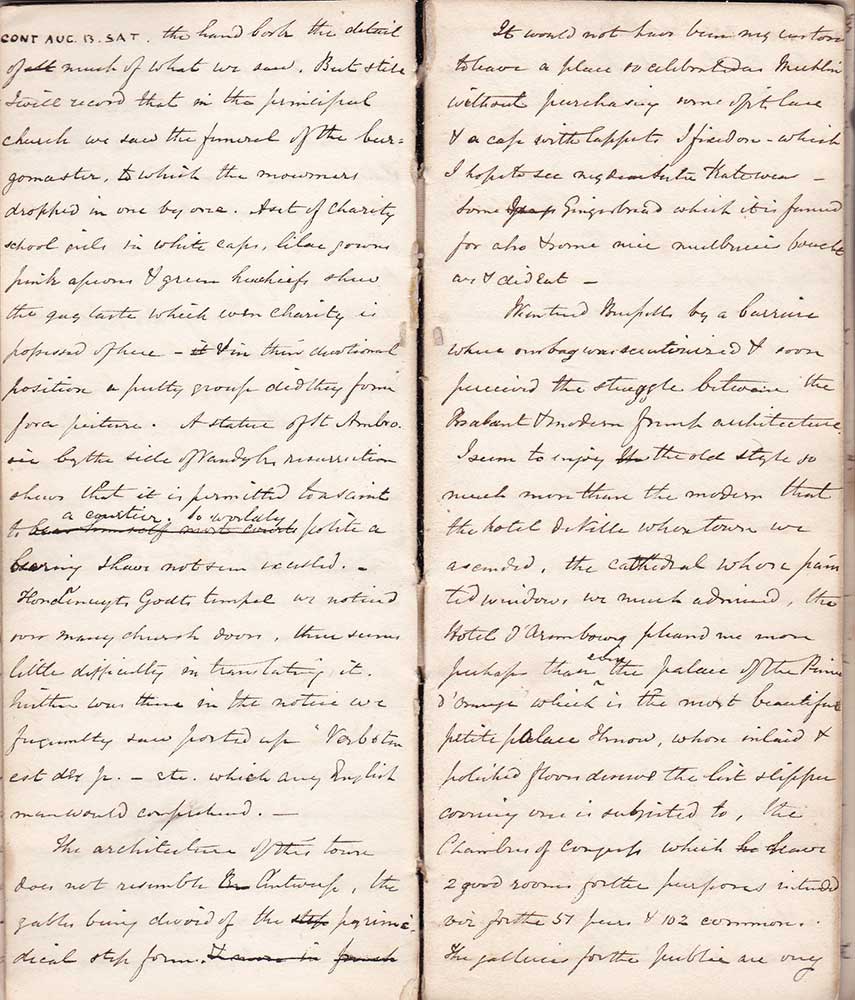 CONT AUG. 13. SAT. the hand book the detail
of all much of what we saw. But still
I will record that in the principal
church we saw the funeral of the bur=
gomaster, to which the mourners
dropped in one by one. A set of Charity
school girls in white caps, lilac gowns
pink aprons & green kerchiefs shew
the gay taste which even charity is
possessed of here - it & in their devotional
position a pretty group did they form
for a picture. A statue of St Ambro.
sie by the side of Vandyks resurrection
shews that it is permitted to a saint
a courtier. So worldly
to bear himself most court polite a
bearing I have not seen excelled. -
Godts tempel we noticed
over many church doors, there seems
little difficulty in translating it.
Neither was there in the notice we
frequently saw posted up "Verboten
est - etc. which any English
man would comprehend. -
The architecture of this town
does not resemble Antwerp, the
gables being divoid of the step pyrimi-
dical step form. It more in french
It would not have been my custom
to leave a place so celebrated as Mechlin
without purchasing some of its lace
& a cap with lappets I fixed on - which
I hope to see my dear sister Kate wear -
Some Gingerbread which it is famed
for also & some nice mulberries bought
we & did eat -
We entered Brussells by a barrier
where our bag was scrutinized & soon
perceived the struggle between the
Brabant & modern french architecture.
I seem to enjoy the old style so
much more than the modern that
the hotel de Ville whose tower we
ascended, the cathedral whose pain
ted windows we much admired, the
Hotel d'Aremberg pleased me more
even
perhaps than the palace of the Prince
d'Orange which is the most beautiful
petite palace I know, whose inlaid &
polished floors deserve the list slipper
covering one is subjected to, the
Chambres of Congress which he have
2 good rooms for the purposes intended
viz for the 51 peers & 102 commons.
The galleries for the public are very